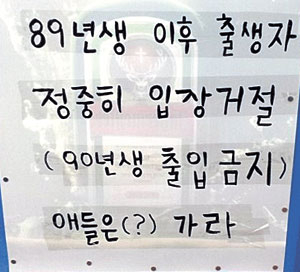 89년생 이후 출생자
정중히 입장거절
(90년생 출입금지)
애들은(?) 가라